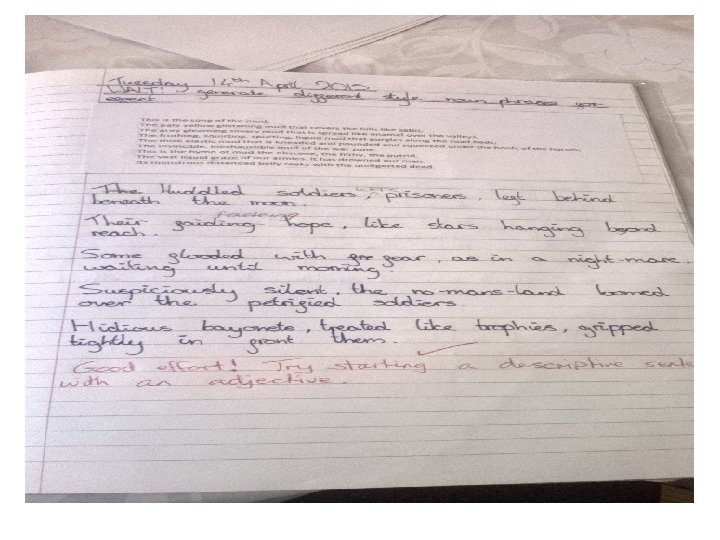 Tuesday 14th April 2015
WALT: generate different style noun phrases for
effect
This is the song of the mud,
The pale yellow glistening mud that covers the hills like satin;
The grey gleaming silvery mud that is spread like enamel over the valleys;
The frothing, squirting, spurting, liquid mud that gurgles along the road beds;
The thick elastic mud that is kneaded and pounded and squeezed under the hoofs of the horses;
The invincible, inexhaustible mud of the war zone.
This is the hymn of mud the obscene, the filthy, the putrid,
The vast liquid grave of our armies. It has drowned our men.
Its monstrous distended belly reeks with the undigested dead.
The Huddled soldiers, were prisoners, left behind
beneath the moon.
Their faiding hope, like stars hanging beond
reach.
Some flooded with fear, as in a night-mare,
waiting until morning
Suspiciously silent, the no-mans-land loomed
over the petrified soldiers.
Hidious bayonets, treated like trophies, gripped
tightly in front them.
Good effort! Try starting a descriptive sente
with an adjective.